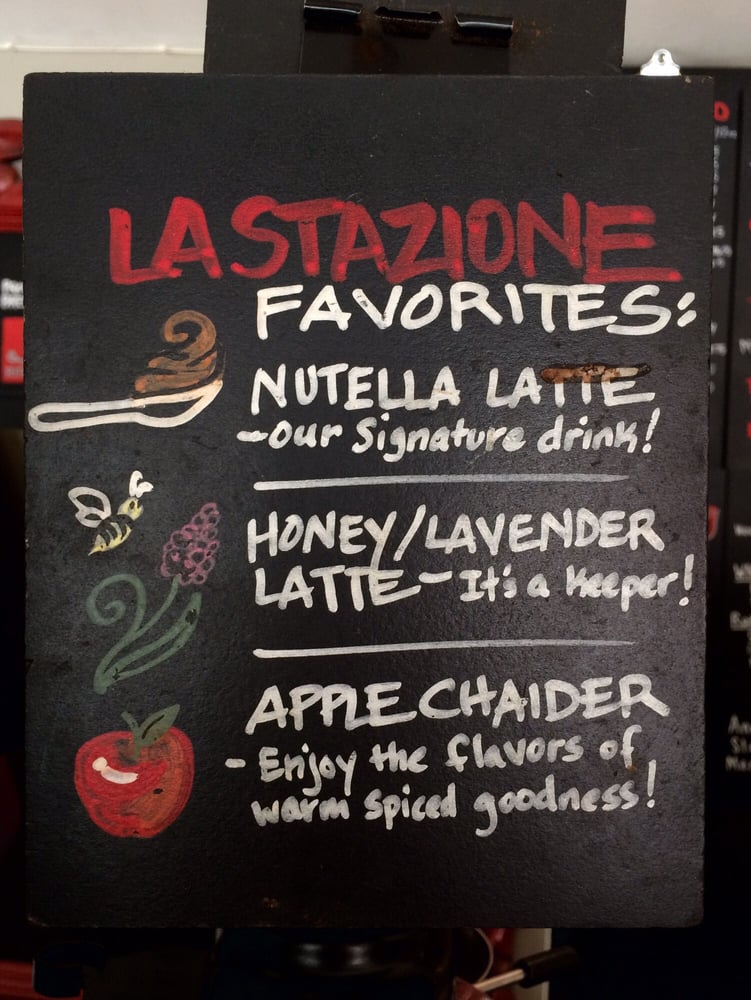 LA STAZIONE
FAVORITES:
NUTELLA LATTE
-Our Signature drink!
HONEY/LAVENDER
LATTE- It's a Keeper!
APPLE CHAIDER
- Enjoy the flavors of
warm spiced goodness!